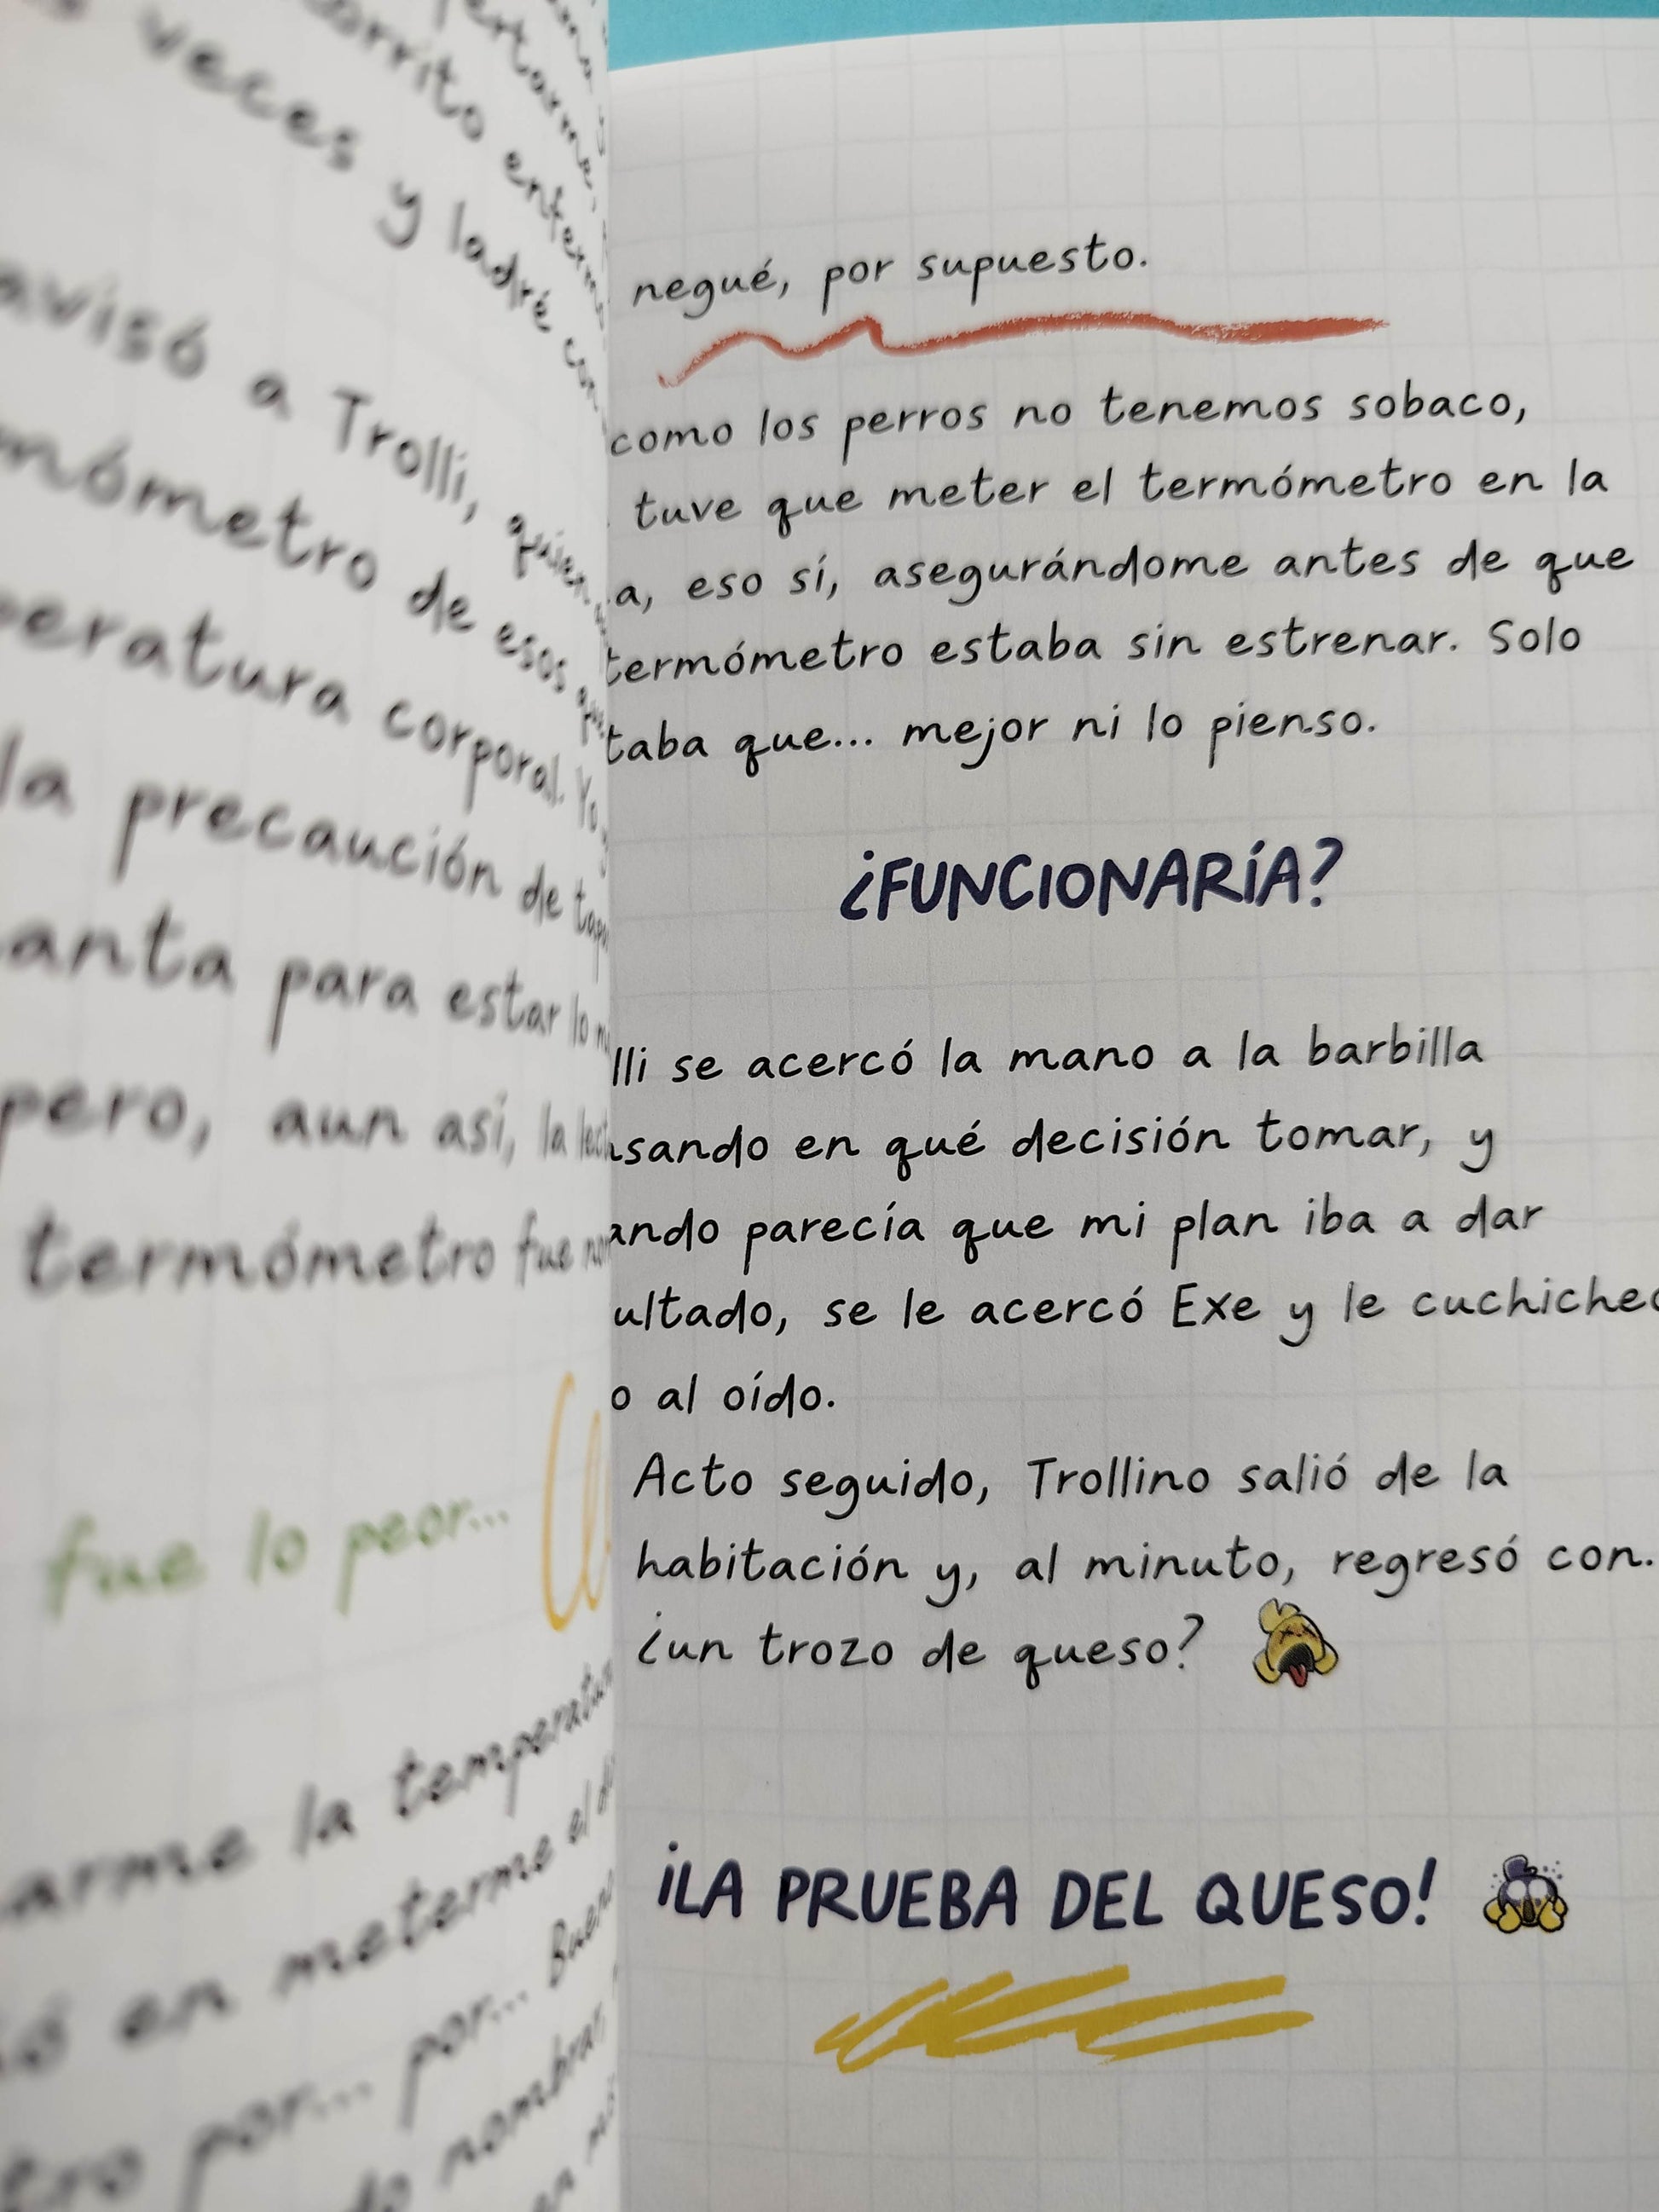 veces y ladré
avisó a Trolli, quien
termómetro de esos
corporal. Yo
la precaución de
para estar lo
pero, aun así, la
termómetro fue
fue lo peor...
la
en meterme el
por... por... Bueno
nombrar
negué, por supuesto.
como los perros no tenemos sobaco,
tuve que meter el termómetro en la
a, eso sí, asegurándome antes de que
termómetro estaba sin estrenar. Solo
taba que... mejor ni lo pienso.
¿FUNCIONARÍA?
lli se acercó la mano a la barbilla
sando en qué decisión tomar, y
ando parecía que mi plan iba a dar
ultado, se le acercó Exe y le cuchicheó
o al oído.
Acto seguido, Trollino salió de la
habitación y, al minuto, regresó con.
¿un trozo de queso?
¡LA PRUEBA DEL QUESO!